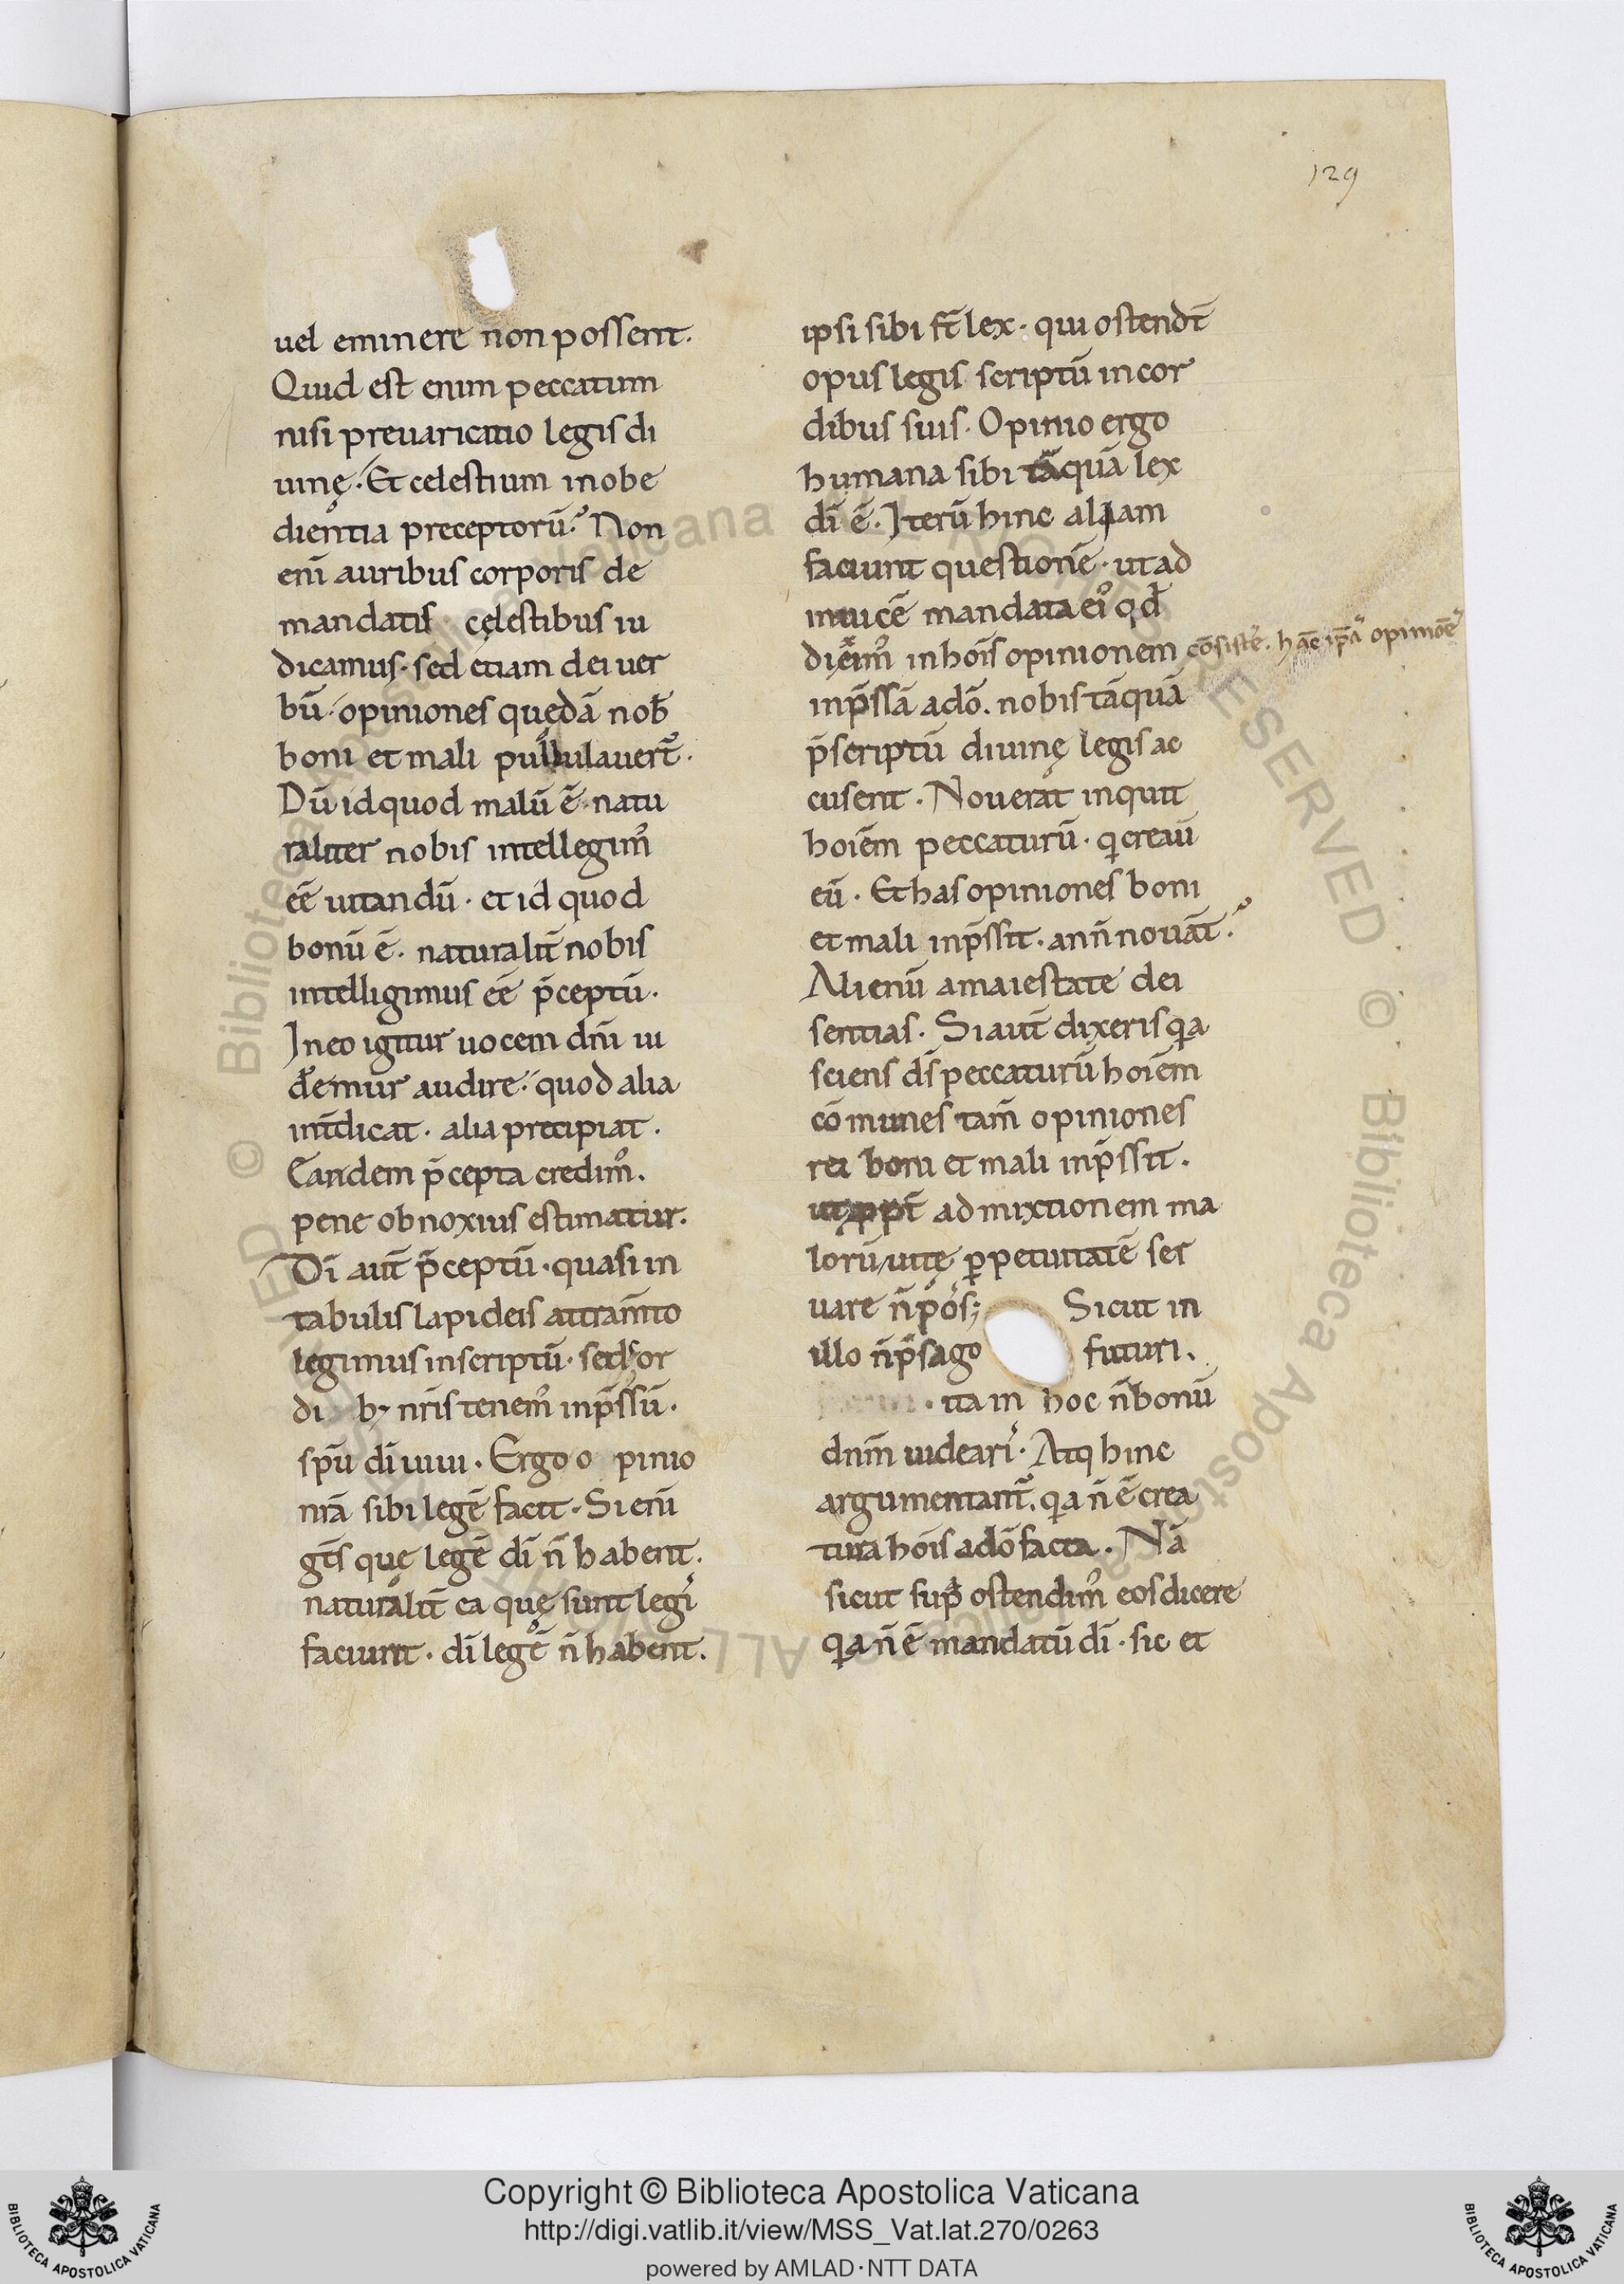 129
uel eminere non possent.
Quid est enim peccatum
nisi preuaricatio legis di
uinę. Et celestium inobe
dientia preceptorū? Non
eni̅ auribus corporis de
mandatis cęlestibus iu
dicamus. sed etiam dei uer
bū. opiniones quędā nob̅
boni et mali pullulauert̅.
Dū id quod malū ē. natu
raliter nobis intellegim᾿
eē uitandū. et id quod
bonū ē. naturalit̅ nobis
intelligimus eē p̅ceptū.
In eo igitur uocem dn̅i ui
demur audire. quod alia
int̅dicat. alia precipiat.
Eandem p̅cepta credim᾿.
pene obnoxius estimatur.
Di̅ aut̅ p̅ceptū. quasi in
tabulis lapideis attram̅to
legimus inscriptū. sed cor
di b; nr̅is tenem᾿ inp̅ssū.
sp̅u di̅ uiui. Ergo o pinio
nr̅a sibi legē facit. Si eni̅
gt̅s quę legē di̅ n̅ habent.
naturalit̅ ea quę sunt legi᾿
faciunt. di̅ legē n̅ habent.
ipsi sibi st̅ lex. qui ostendt̅
opus legis scriptū in cor
dibus suis. Opinio ergo
humana sibi tāquā lex
di̅ ē. Iterū hinc aliam
faciunt questionē. ut ad
inuicē mandata ei᾿ qd̅
in hoi̅s opinionem cōsiste̅. opinionē
inp̅ssā a dō. nobis tāquā
p̅scriptū diuinę legis ac
cusent. Nouerat inquit
hoi̅em peccaturū. q̇ creaū
eū. Et has opiniones boni
et mali inp̅ssit. an n̅ nouāt?
Alienū a maiestate dei
sentias. Si aut̅ dixeris qa
sciens ds̅ peccaturū hoi̅em
cōmunes tam̅ opiniones
rei boni et mali inp̅ssit.
ut ppt̅ admixtionem ma
lorū uitę ꝑpetuitatē ser
uare n̅ pos; Sicut in
illo n̅ p̅sago futuri.
ita in hoc n̅ bonū
dn̅m uideari᾿. Atq hinc
argumentant̅. qa n̅ ē crea
tura hoi̅s a dō facta. Nā
sicut sup̅ ostendim᾿ eos dicere
qa n̅ ē mandatū di̅. sic et
Copyright © Biblioteca Apostolica Vaticana
http://digi.vatlib.it/view/MSS_Vat.lat.270/0263
powered by AMLAD·NTT DATA
BIBLIOTECA APOSTOLICA VATICANA
BIBLIOTECA APOSTOLICA VATICANA